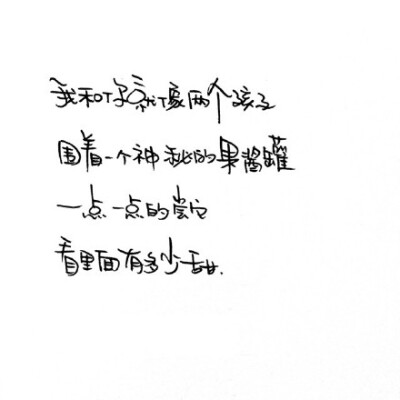 我和你就像两个孩子
围着一个神秘的果酱罐
一点一点的尝它
看里面有多少甜.